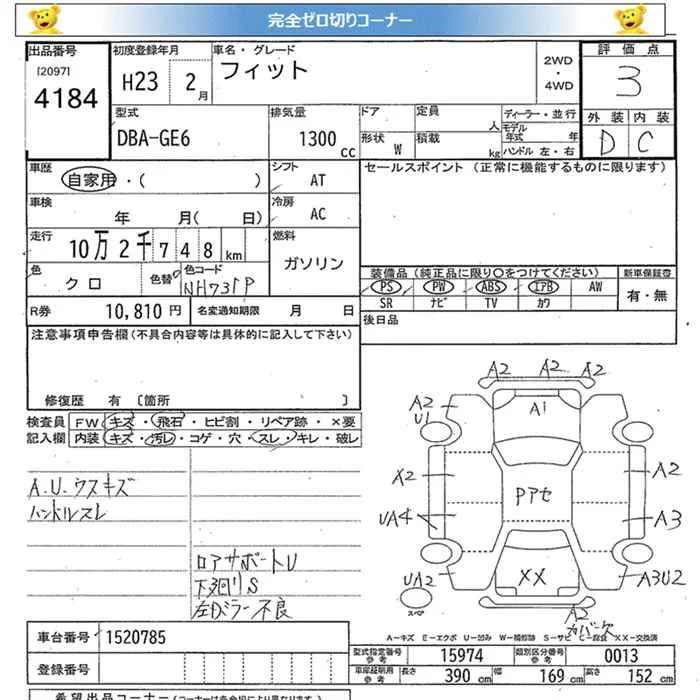 完全ゼロ切りコーナー
出品番号 初度登録年月 車名・グレード 評価点
[2097]
4184 H23 2月 フィット 2WD・4WD 3
型式 排気量 ドア 定員 人 ディーラー・並行 外装 内装
DBA-GE6 1300cc 形状 W 積載 kg モデル年式 年 ハンドル 左・右 D C
車歴 シフト セールスポイント (正常に機能するものに限ります)
自家用・( ) AT
車検 冷房
年 月( 日) AC
走行 10万2千748km 燃料
ガソリン
色 クロ 色替 色コード NH731P
装備品(純正品に限り○をつけてください) 新車保証書
PS PW ABS エアB AW 有・無
SR ナビ TV カワ
R券 10,810円 名変通知期限 月 日 後日品
注意事項申告欄(不具合内容等は具体的に記入して下さい)
修復歴 有 [箇所 ]
検査員記入欄 FW キズ・飛石・ヒビ割・リペア跡・×要
内装 キズ・汚レ・コゲ・穴・スレ・キレ・破レ
A.U.ウスキズ
ハンドルスレ
ロアサポートU
下廻りS
左Dミラー不良
A2 A2 A2
A2 U1 A1
X2 Pアセ A2
UA4 A3
UA2 XX A3U2
スペア
A2
カバー欠
A-キズ E-エクボ U-凹み W-補修跡 S-サビ C-腐食 XX-交換済
車台番号 1520785
登録番号
型式指定番号 参考 15974 類別区分番号 参考 0013
車庫証明用 参考 長さ 390cm 幅 169cm 高さ 152cm
希望出品コーナー